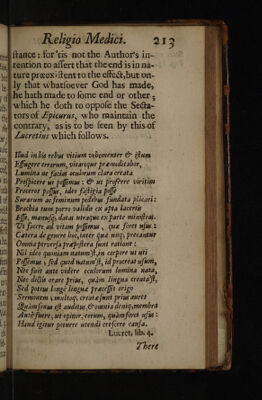 Religio Medici. 213
stance: for 'tis not the Author's in-
tention to assert that the end is in na-
ture præexistent to the effect, but on-
ly that whatsoever God has made,
he hath made to some end or other;
which he doth to oppose the Secta-
tors of Epicurus, who maintain the
contrary, as is to be seen by this of
Lucretius which follows.
Illud in his rebus vitium vehementer & istum
Effugere errorum, vitareque præmeditabor,
Lumina ne facias oculorum clara creata
Prospicere ut possimus; & ut proferre viritim
Proceros passus, ideo fastigia posse
Surarum ac feminum pedibus fundata plicari:
Brachia tum porro validis ex apta lacertis
Esse, manusq; datas utraque ex parte ministras,
Ut facere ad vitam possimus, quæ foret usus:
Cætera de genere hoc, inter quæ cunq; precantur
Omnia perversa præpostera sunt ratione:
Nil ideo quoniam natum'st, in corpore ut uti
Possemus; sed quod natum'st, id procreat usum,
Nec fuit ante videre oculorum lumina nata,
Nec dictis orare prius, quàm lingua creata'st,
Sed potius longè linguæ præcessit origo
Sermonem; multoq; creatæ sunt prius aures
Quàm sonus est auditus, & omnia deniq; membra
Ante fuere, ut opinor, eorum, quàm foret usus:
Haud igitur potuere utendi crescere causa.
Lucret. lib. 4.
There